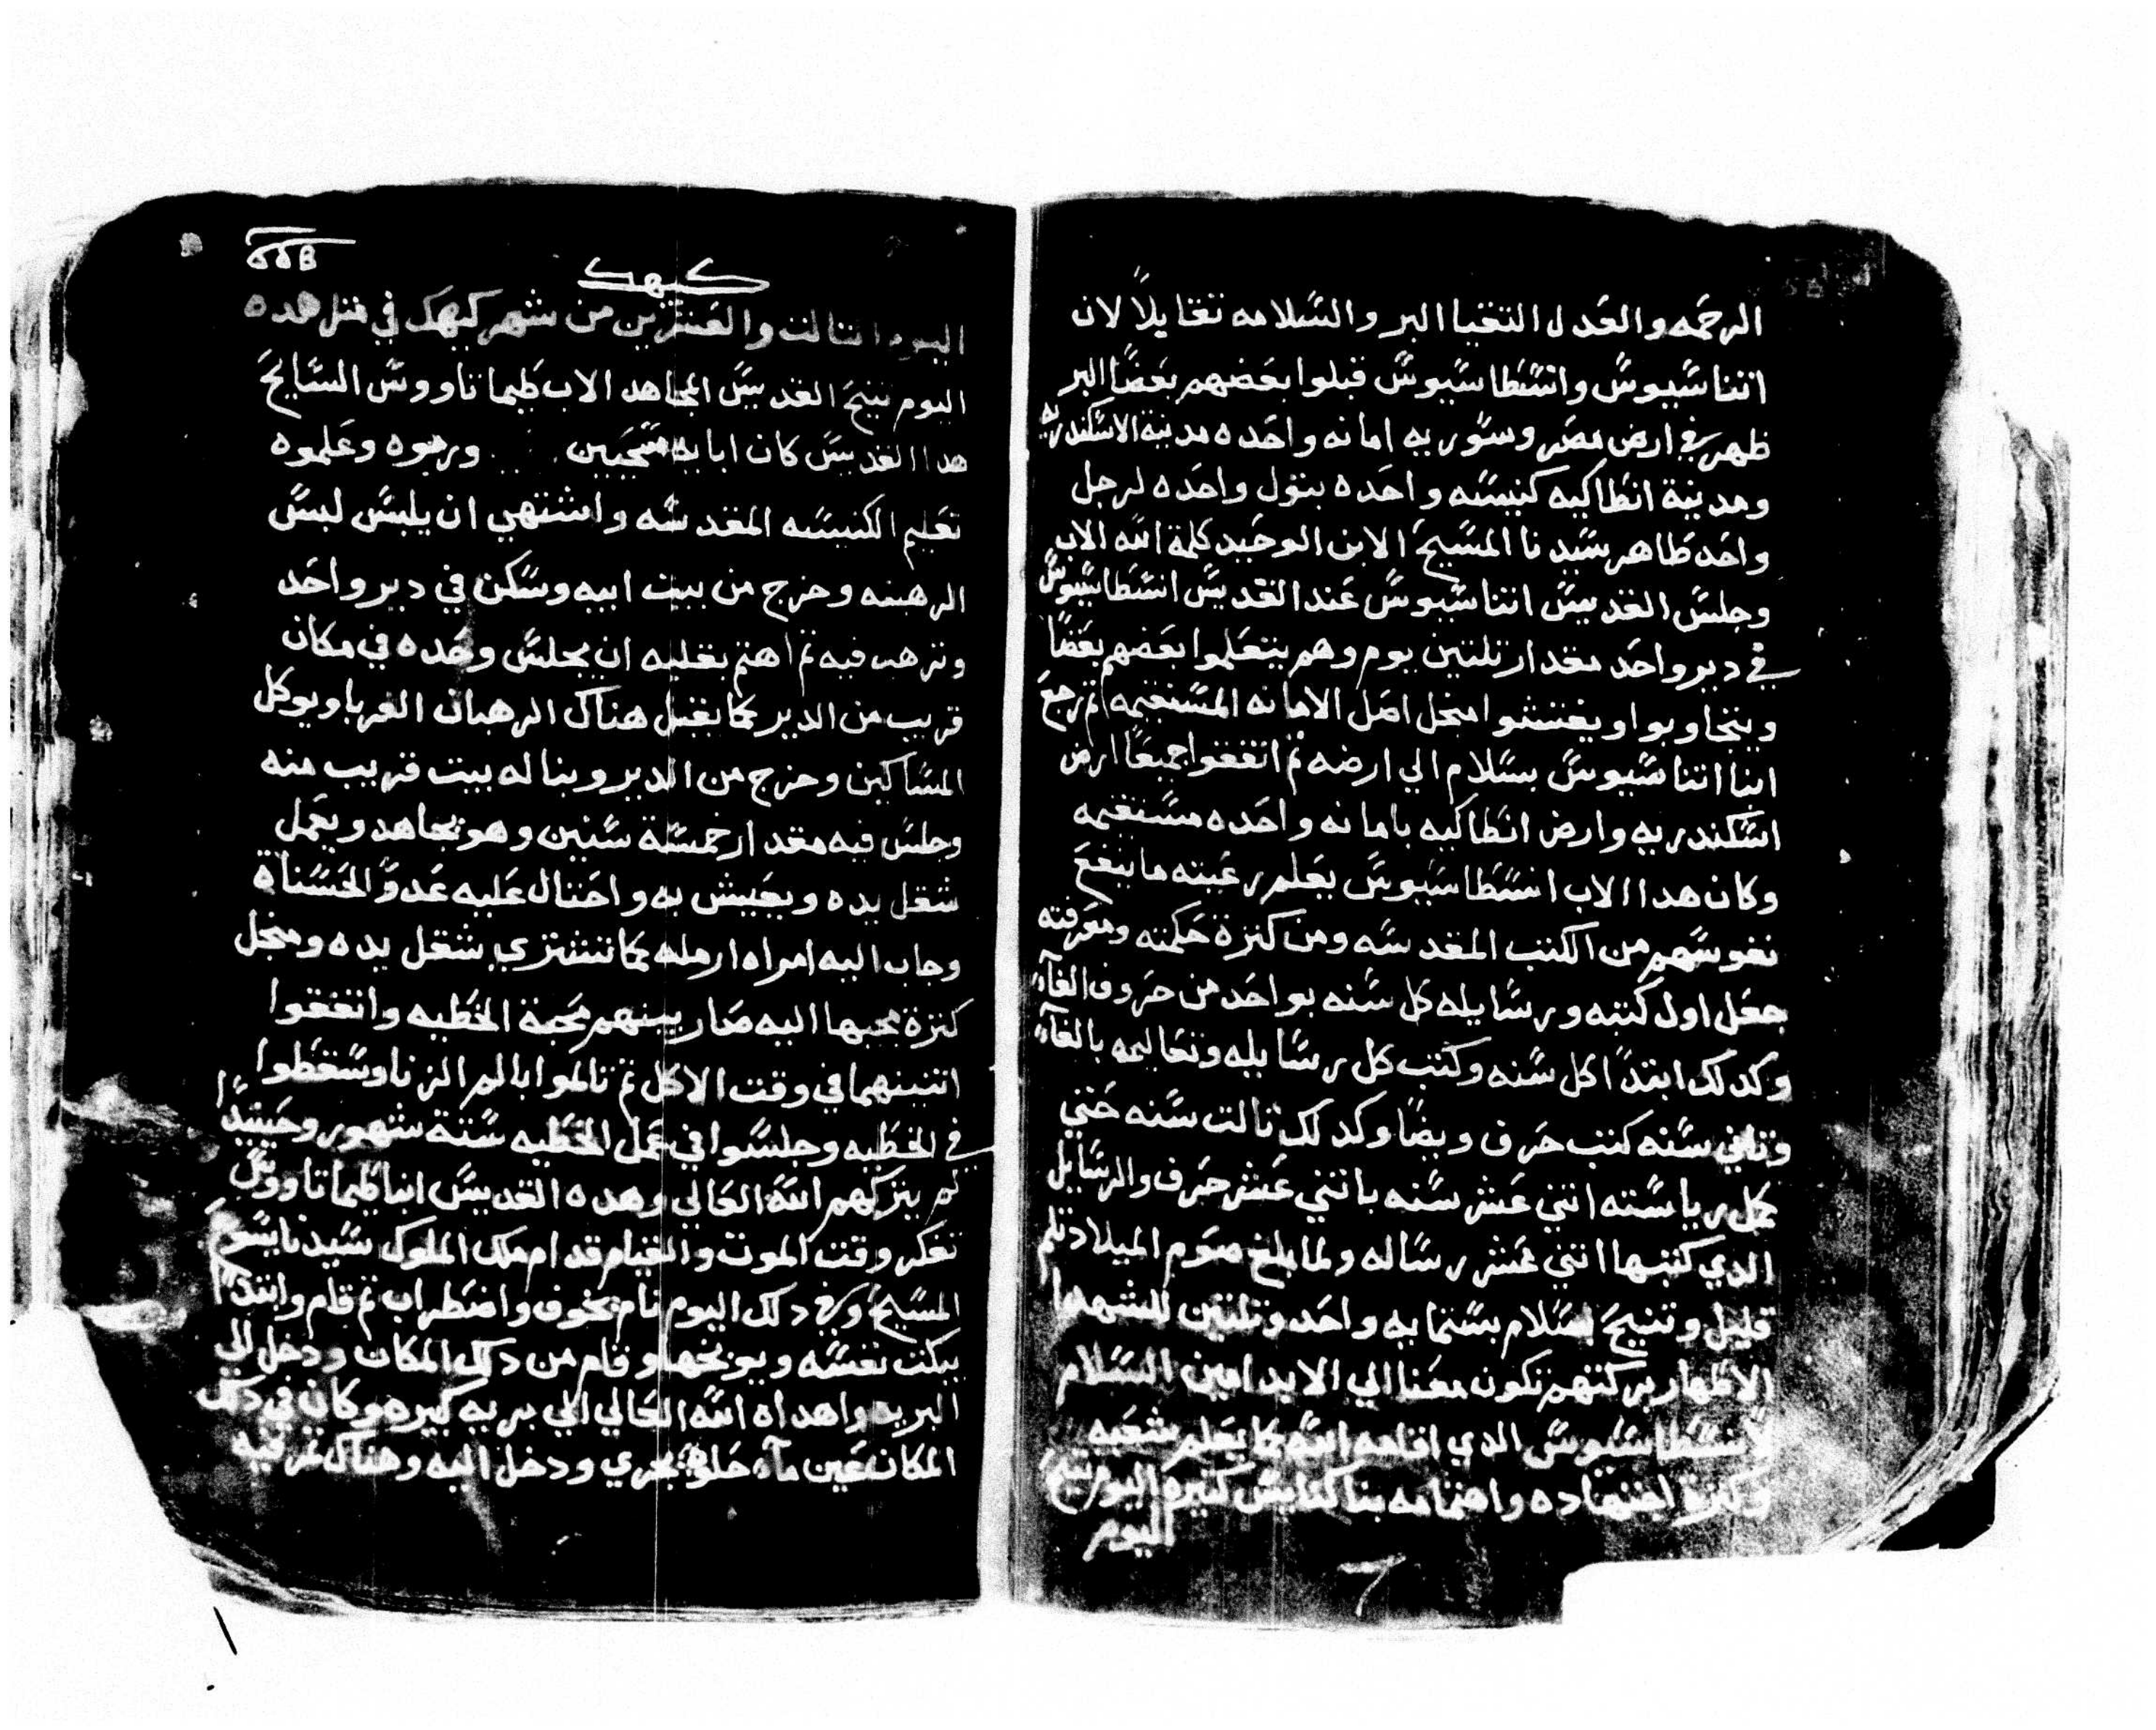 الرحمه والعدل التقيا البر والسلامه تقابلا لان
اتناسيوس وانسطاسيوس قبلوا بعضهم بعضا البر
ظهر في ارض مصر وسوريه امانه واحده مدينة الاسكندريه
ومدينة انطاكيه كنيسه واحده بتول واحده لرجل
واحد طاهر سيدنا المسيح الابن الوحيد كلمة الله الاب
وجلس القديس اتناسيوس عند القديس انسطاسيوس
في دير واحد مقدار تلتين يوم وهم يتعلموا بعضهم بعضا
ويتجاوبوا ويفتشوا منجل اصل الامانه المستقيمه تم رجع
ابنا اتناسيوس بسلام الي ارضه تم اتفقوا جميعا ارض
اسكندريه وارض انطاكيه بامانه واحده مستقيمه
وكان هدا الاب انسطاسيوس يعلم رعيته ما ينفع
نفوسهم من الكتب المقدسه ومن كترة حكمته ومعرفته
جعل اول كتبه ورسايله كل سنه بواحد من حروف الفاء
وكدلك ابتدا كل سنه وكتب كل رسايله وتعاليمه بالفاء
وتاني سنه كتب حرف ويضا وكدلك تالت سنه حتي
كمل رياسته اتني عشر سنه باتني عشر حرف والرسايل
الدي كتبها اتني عشر رساله ولما بلغ صوم الميلاد تالم
قليل وتنيح بسلام بستمايه واحد وتلتين للشهدا
الاطهار بركتهم تكون معنا الي الابد امين السلام
لانسطاسيوس الدي اقامه الله كما يعلم شعبه
وكترة اجتهاده واهتمامه بنا كنايس كتيره اليوم تنيح
اليوم
كيهك
اليوم التالت والعشرين من شهر كيهك في متل هده
اليوم تنيح القديس المجاهد الاب طيماتاووس السايح
هدا القديس كان ابايه مسيحيين وربوه وعلموه
تعليم الكنيسه المقدسه واشتهي ان يلبس لبس
الرهبنه وخرج من بيت ابيه وسكن في دير واحد
وترهب فيه تم اهتم بقلبه ان يجلس وحده في مكان
قريب من الدير كما يقبل هناك الرهبان الغربا ويوكل
المساكين وخرج من الدير وبنا له بيت قريب منه
وجلس فيه مقدار خمسة سنين وهو يجاهد ويعمل
شغل يده ويعيش به واحتال عليه عدو الحسناة
وجاب اليه امراه ارمله كما تشتري شغل يده ومنجل
كترة مجيها اليه صار بينهم محبة الخطيه واتفقوا
اتنينهما في وقت الاكل تم تالموا بالم الزنا وسقطوا
في الخطيه وجلسوا في عمل الخطيه ستة شهور وحينيدا
لم يتركهم الله العالي وهده القديس ابنا طيماتاووس
تفكر وقت الموت والقيام قدام ملك الملوك سيدنا يسوع
المسيح وفي دلك اليوم نام بخوف واضطراب تم قام وابتدا
يبكت نفسه ويوبخها وقام من دلك المكان ودخل الي
البريه واهداه الله العالي الي بريه كبيره وكان في دلك
المكان عين ماء حلوه تجري ودخل اليه وهناك تمر فيه